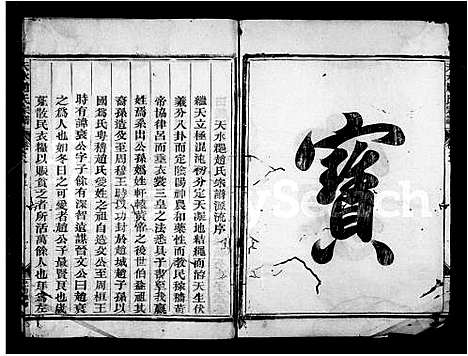 寶
天水趙氏宗譜源流序
繼天立極混沌初分定天混地結繩而治天生伏
義分八卦而定陰陽神農和藥性而教民稼穡黃
帝協律呂而垂衣裳三皇之法悉具子書至我嬴
姓爲系出公孫姓軒轅黃帝之後世伯益祖其
裔孫造父至周穆王時以功封於趙城趙子孫以
國爲氏粵稽趙氏受姓之祖自造父公至周桓王
時有諱衰公字子餘有深智遠謀晉文公曰趙衰
之爲人也如冬日之可愛者趙公子最賢良也歲
荒散民衣糧以賑貧乏者所活萬餘人也年 左
Search